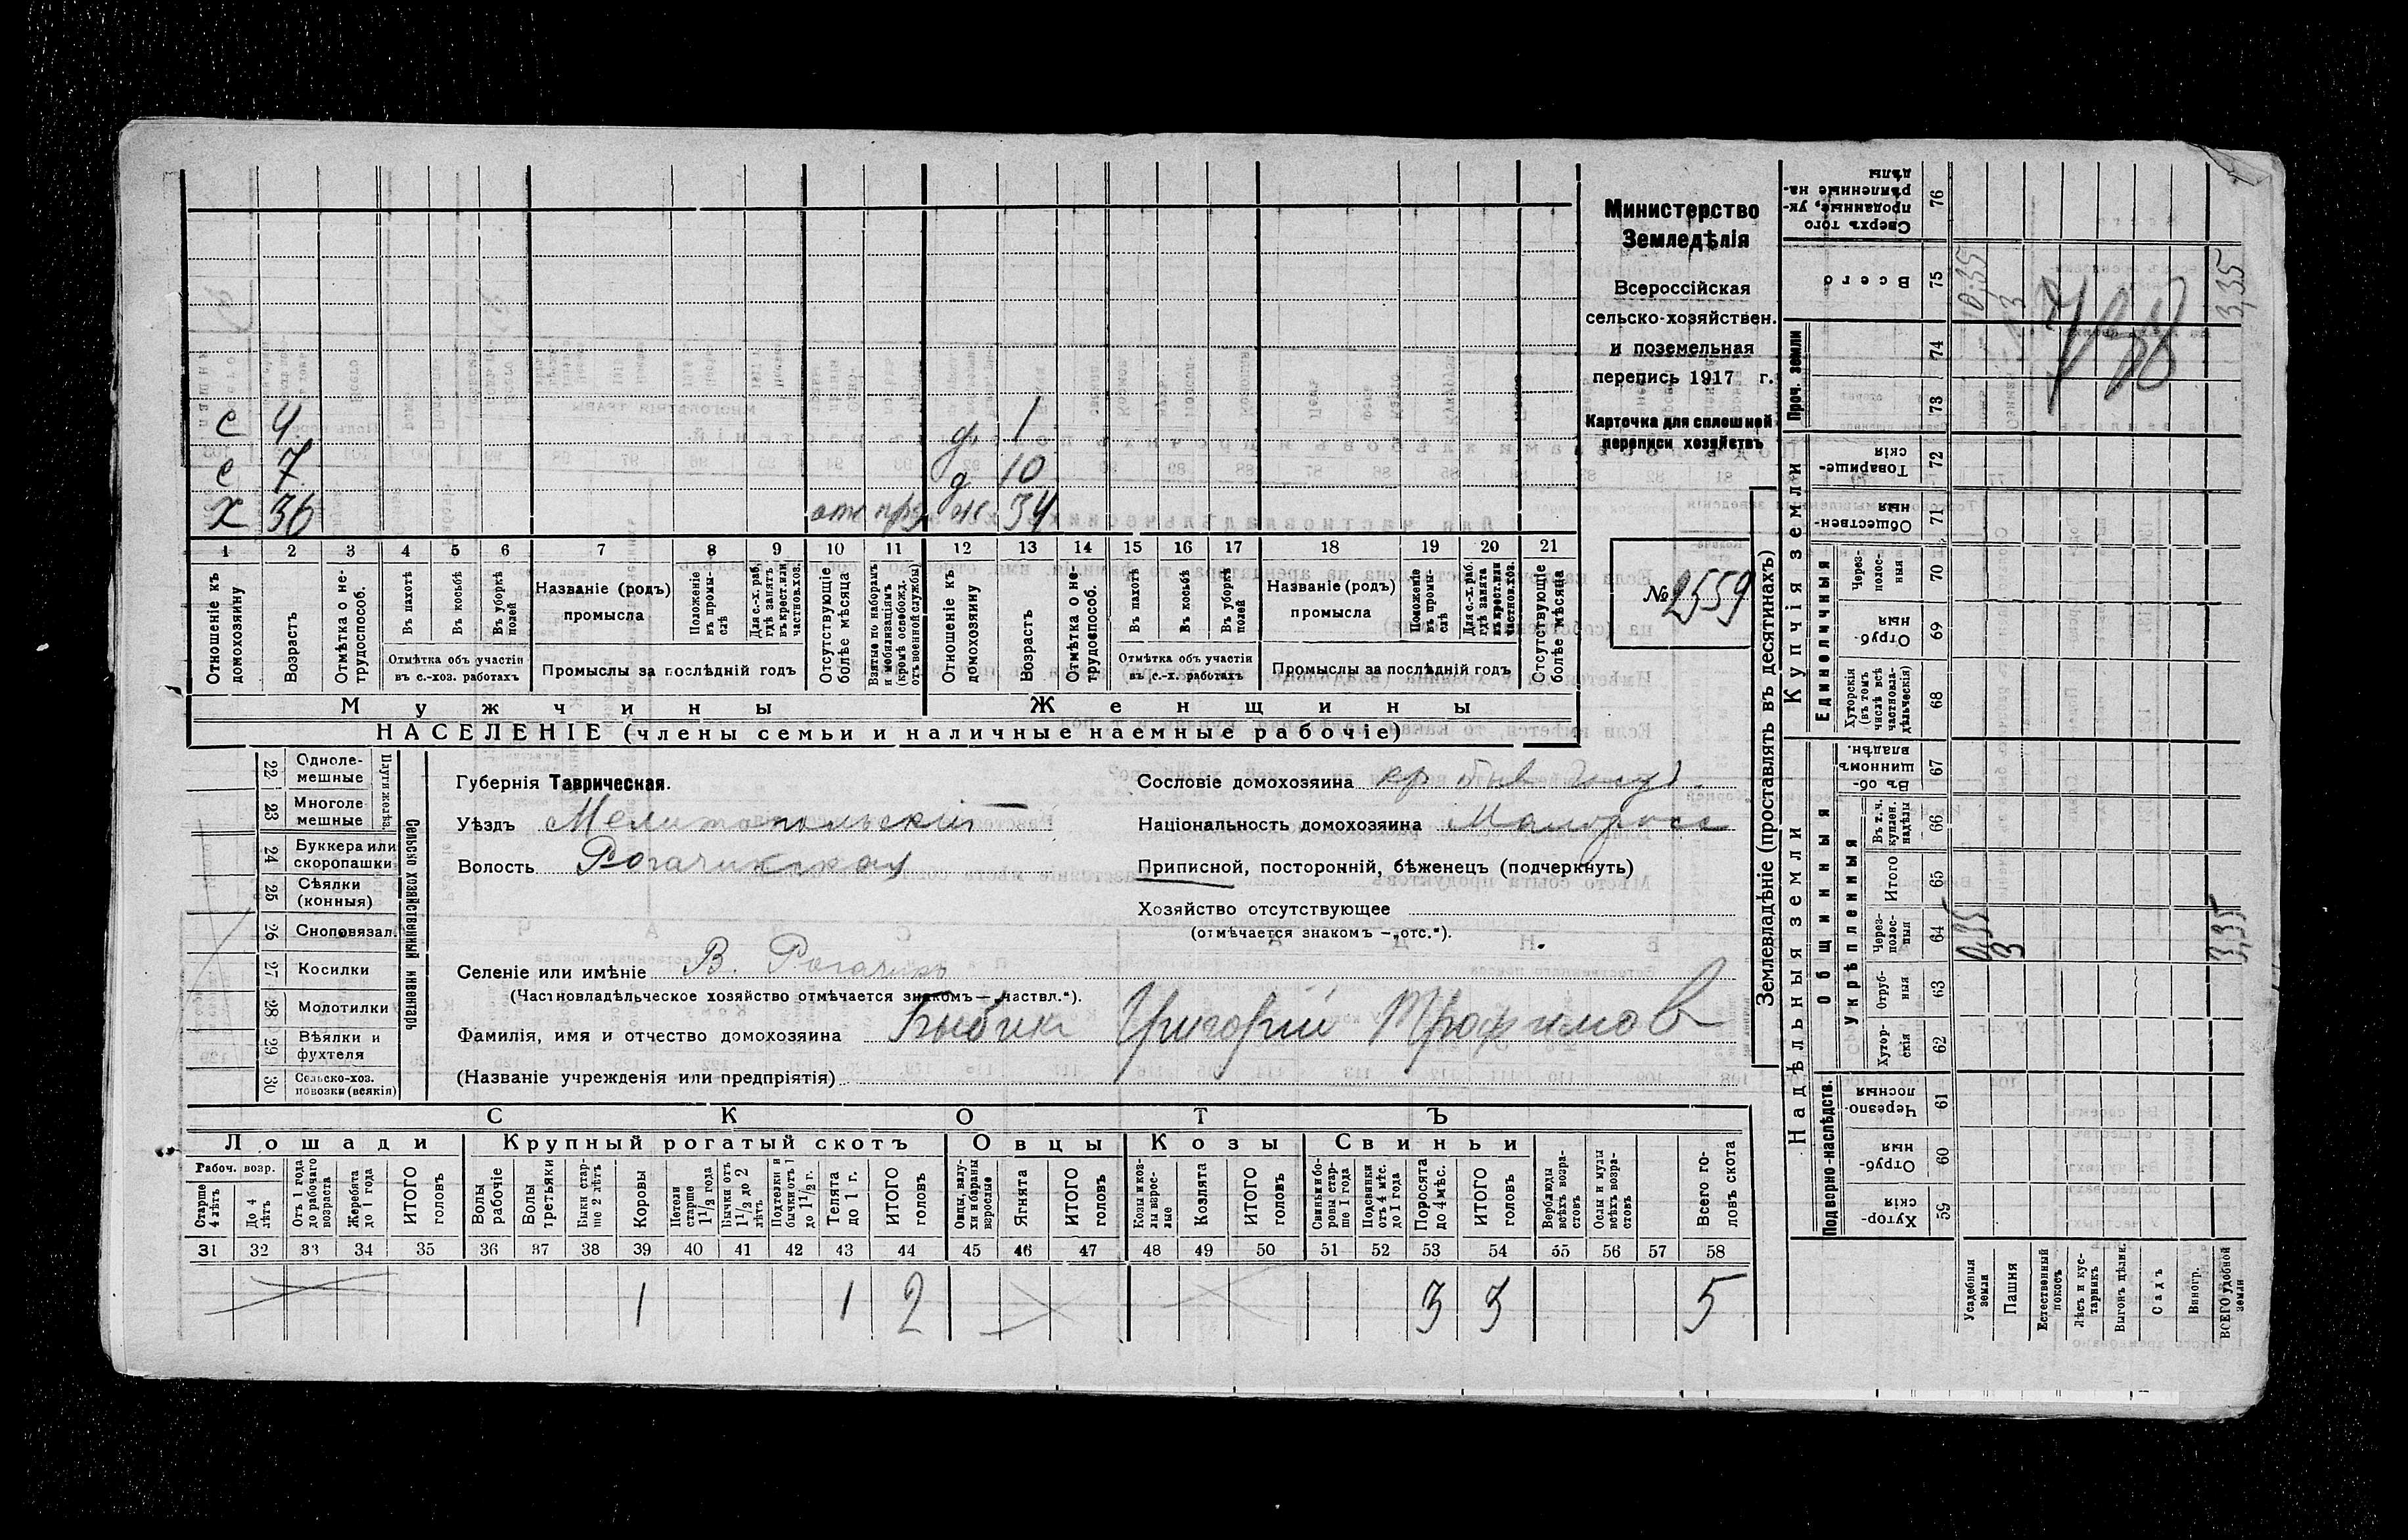 Министерство
Земледѣлія
Всероссійская
сельско-хозяйствен.
и поземельная
перепись 1917 г.
Карточка для сплошной
переписи хозяйствъ
№ 2559
с 4 д 1
с 7 д 10
х 36 отс ж 34
1 2 3 4 5 6 7 8 9 10 11 12 13 14 15 16 17 18 19 20 21
Отношеніе къ домохозяину
Возрастъ
Отмѣтка о не-трудоспособ.
Въ пахотѣ
Въ косьбѣ
Въ уборкѣ полей
Отмѣтка объ участіи въ с.-хоз. работахъ
Названіе (родъ) промысла
Положеніе въ промы-слѣ
Для с.-х. раб. гдѣ занятъ въ крест. или частнов. хоз.
Промыслы за послѣдній годъ
Отсутствующіе болѣе мѣсяца
Взятые по наборамъ и мобилизаціямъ (кромѣ освобожд. отъ военной службы)
Отношеніе къ домохозяину
Возрастъ
Отмѣтка о не-трудоспособ.
Въ пахотѣ
Въ косьбѣ
Въ уборкѣ полей
Отмѣтка объ участіи въ с.-х. работахъ
Названіе (родъ) промысла
Положеніе въ промы-слѣ
Для с.-х. раб. гдѣ занята въ крест. или частнов. хоз.
Промыслы за послѣдній годъ
Отсутствующіе болѣе мѣсяца
Мужчины Женщины
НАСЕЛЕНІЕ (члены семьи и наличные наемные рабочіе)
Сельско хозяйственный инвентарь
Плуги желѣз.
22 Одноле-мешные
23 Многоле мешные
24 Буккера или скоропашки
25 Сѣялки (конныя)
26 Сноповязал.
27 Косилки
28 Молотилки
29 Вѣялки и фухтеля
30 Сельско-хоз. повозки (всякія)
Губернія Таврическая.
Уѣздъ Мелитопольскій
Волость Рогачикская
Сословіе домохозяина кр быв
Національность домохозяина Малоросс
Приписной, посторонній, бѣженецъ (подчеркнуть)
Хозяйство отсутствующее
(отмѣчается знакомъ —„отс.“).
Селеніе или имѣніе В. Рогачикъ
(Частновладѣльческое хозяйство отмѣчается знакомъ—„частвл.“).
Фамилія, имя и отчество домохозяина Бибик Григорій Трофимов
(Названіе учрежденія или предпріятія)
СКОТЪ
Лошади Крупный рогатый скотъ Овцы Козы Свиньи
Рабоч. возр.
Старше 4 лѣтъ
До 4 лѣтъ
Отъ 1 года до рабочаго возраста
Жеребята до 1 года
ИТОГО головъ
Волы рабочіе
Волы третьяки
Быки стар-ше 2 лѣтъ
Коровы
Нетели старше 1½ года
Бычки отъ 1½ до 2 лѣтъ
Подтелки и бычки отъ 1 до 1½ г.
Телята до 1 г.
ИТОГО головъ
Овцы, валу-хи и бараны взрослые
Ягнята
ИТОГО головъ
Козы и коз-лы взрос-лые
Козлята
ИТОГО головъ
Свиньи и бо-ровы стар-ше 1 года
Подсвинки отъ 4 мѣс. до 1 года
Поросята до 4 мѣс.
ИТОГО головъ
Верблюды всѣхъ возра-стовъ
Ослы и мулы всѣхъ возра-стовъ
Всего го-ловъ скота
31 32 33 34 35 36 37 38 39 40 41 42 43 44 45 46 47 48 49 50 51 52 53 54 55 56 57 58
1 1 2 3 3 5
Землевладѣніе (проставлять въ десятинахъ)
Сверхъ того проданные, ук-рѣпленные на-дѣлы 76
Всего 75
Проч. земли 74
73
Купчія земли
Товарище-скія 72
Обществен-ныя 71
Единоличныя
Через-полос-ныя 70
Отруб-ныя 69
Хуторскія (въ томъ числѣ всѣ частновла-дѣльческія) 68
Надѣльныя земли
Общинныя
Въ об-щинномъ владѣн. 67
Укрѣпленныя
Въ т. ч. куплен. надѣлы 66
Итого 65
Через-полос-ныя 64
Отруб-ныя 63
Хутор-скія 62
Подворно-наслѣдств.
Черезпо-лосныя 61
Отруб-ныя 60
Хутор-скія 59
0,35 3 3,35
0,35 3 3,35
Усадебныя земли
Пашня
Естественный покосъ
Лѣсъ и кус-тарникъ
Выгонъ цѣлин.
Садъ
Виногр.
ВСЕГО удобной земли